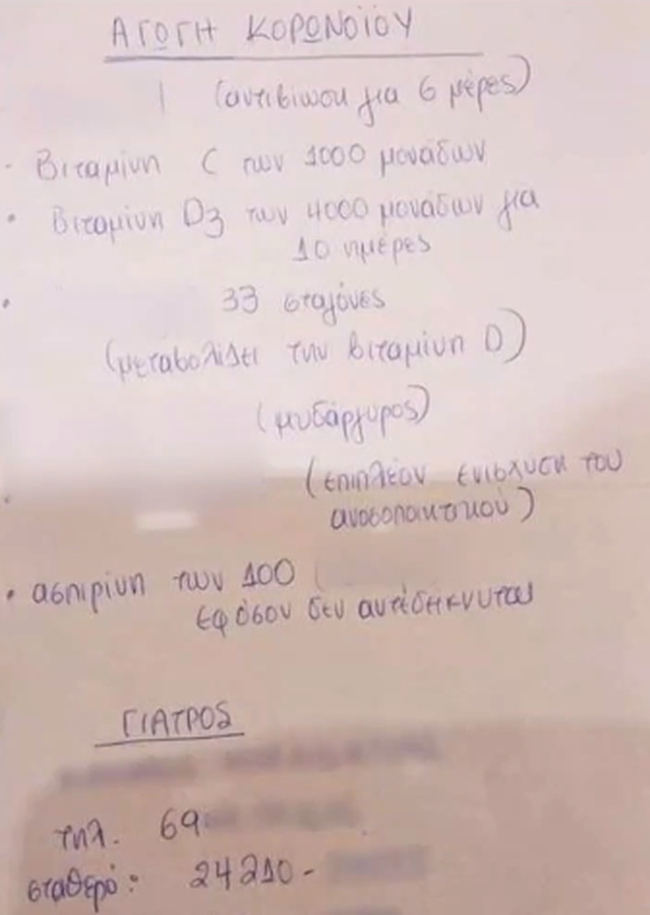 ΑΓΩΓΗ ΚΟΡΩΝΟΪΟΥ
(αντιβίωση για 6 μέρες)
· Βιταμίνη C των 1000 μονάδων
· Βιταμίνη D3 των 4000 μονάδων για
10 ημέρες
· 33 σταγόνες
(μεταβολίζει την βιταμίνη D)
(μυδάργυρος)
(επιπλέον ενίσχυση του
ανοσοποιητικού)
· ασπιρίνη των 100 (
εφόσον δεν αντεδείκνυται
ΓΙΑΤΡΟΣ
τηλ. 69
σταθερό: 24210-